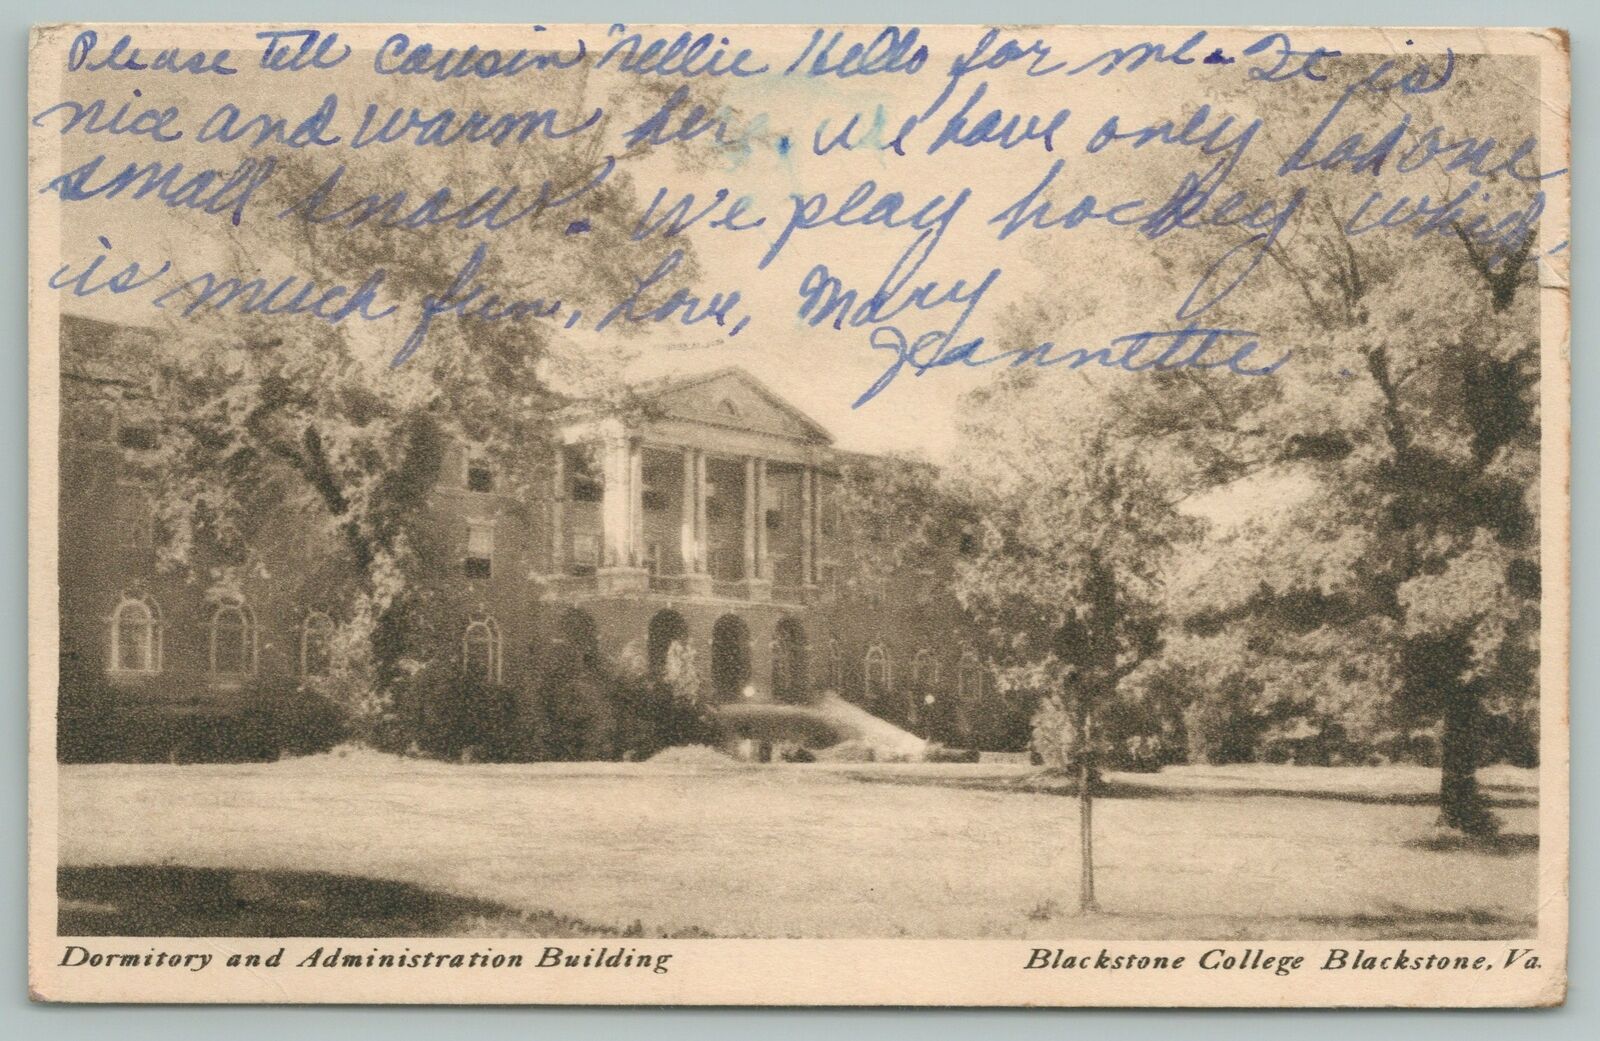 Please Tell Cousin Nellie Hello for me. It is
nice and warm here, we have only had one
small snow. We play hockey which,
is much fun, Love, Mary
Jeannette
Dormitory and Administration Building
Blackstone College Blackstone, Va.